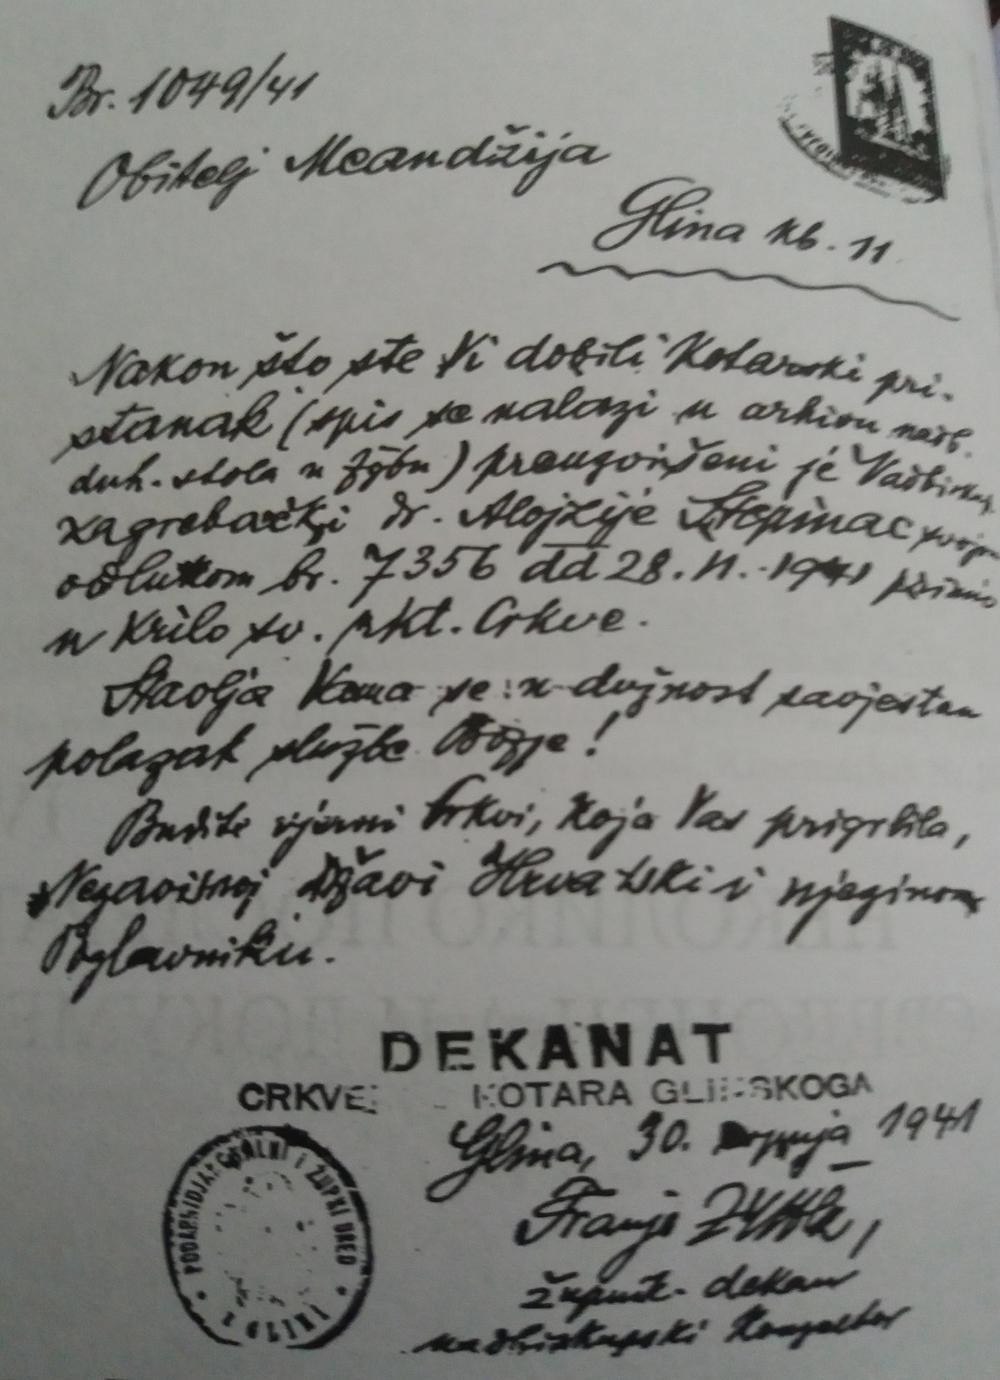 Br. 1049/41
Obitelj Meandžija
Glina kb. 11
Nakon što ste Vi dobili Kotarski pri-
stanak (spis se nalazi u arhivu nadb.
duh. stola u Zgbu) preuzvišeni je Nadbiskup
zagrebački dr. Alojzije Stepinac svojom
odlukom br. 7356 dd 28. 1941 primio
u krilo sv. rkt. Crkve.
Stavlja Vama se u dužnost savjestan
polazak službe Božje!
Budite vjerni Crkvi, koja Vas prigrlila,
Nezavisnoj Državi Hrvatskoj i njezinom
Poglavniku.
DEKANAT
CRKVE KOTARA GLINSKOGA
Glina, 30. 1941
Franjo
župnik dekan
nadbiskupski
PODARHIDJAKONALNI I ŽUPNI URED